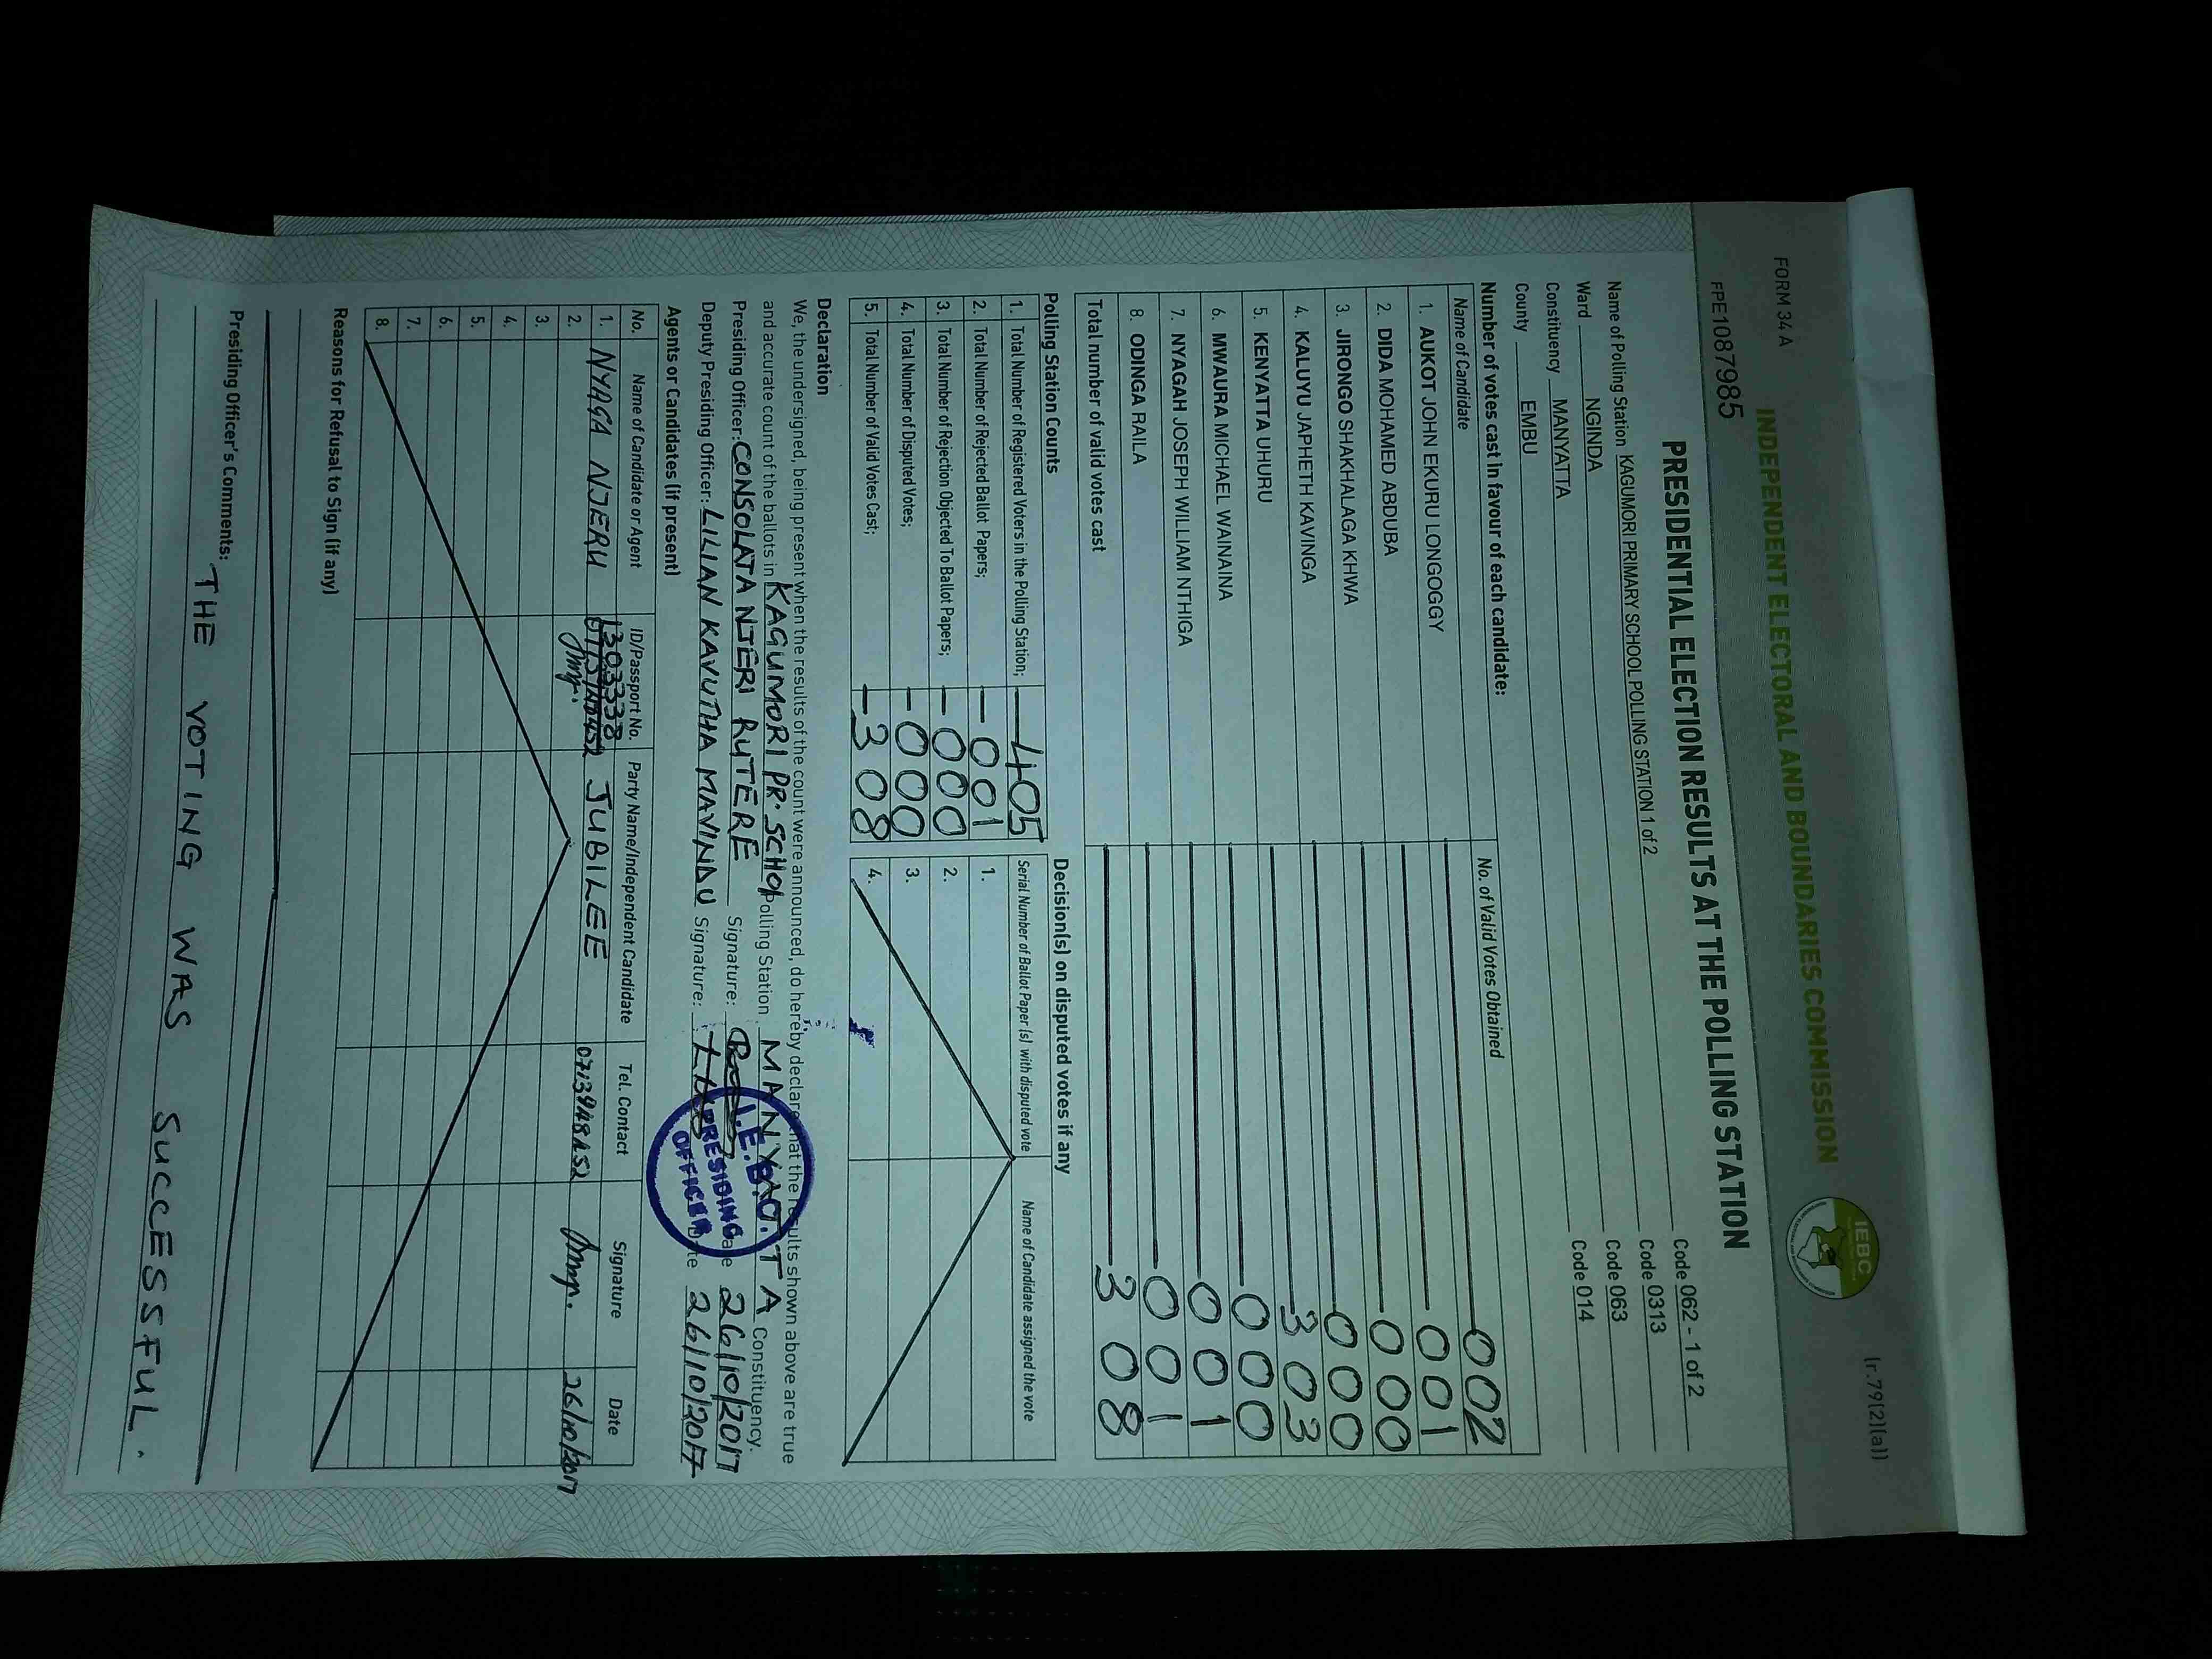 FORM 34 A
(r.79(2)(a))
INDEPENDENT ELECTORAL AND BOUNDARIES COMMISSION
IEBC
FPE1087985
PRESIDENTIAL ELECTION RESULTS AT THE POLLING STATION
Name of Polling Station KAGUMORI PRIMARY SCHOOL POLLING STATION 1 of 2 Code 062 - 1 of 2
Ward NGINDA Code 0313
Constituency MANYATTA Code 063
County EMBU Code 014
Number of votes cast in favour of each candidate:
Name of Candidate No. of Valid Votes Obtained
1. AUKOT JOHN EKURU LONGOGGY 002
2. DIDA MOHAMED ABDUBA 001
3. JIRONGO SHAKHALAGA KHWA 000
4. KALUYU JAPHETH KAVINGA 000
5. KENYATTA UHURU 303
6. MWAURA MICHAEL WAINAINA 000
7. NYAGAH JOSEPH WILLIAM NTHIGA 001
8. ODINGA RAILA 001
Total number of valid votes cast 308
Polling Station Counts
1. Total Number of Registered Voters in the Polling Station; 405
2. Total Number of Rejected Ballot Papers; 001
3. Total Number of Rejection Objected To Ballot Papers; 000
4. Total Number of Disputed Votes; 000
5. Total Number of Valid Votes Cast; 308
Decision(s) on disputed votes if any
Serial Number of Ballot Paper (s) with disputed vote Name of Candidate assigned the vote
1.
2.
3.
4.
Declaration
We, the undersigned, being present when the results of the count were announced, do hereby declare that the results shown above are true
and accurate count of the ballots in KAGUMORI PR. SCHOOL Polling Station MANYATTA Constituency.
Presiding Officer: CONSOLATA NJERI RUTERE Signature: Date 26/10/2017
Deputy Presiding Officer: LILIAN KAVUTHA MAVINDU Signature: Date 26/10/2017
I.E.B.C.
PRESIDING
OFFICER
Agents or Candidates (if present)
No. Name of Candidate or Agent ID/Passport No. Party Name/Independent Candidate Tel. Contact Signature Date
1. NYAGA NJERU 13033338 JUBILEE 26/10/2017
2.
3.
4.
5.
6.
7.
8.
Reasons for Refusal to Sign (if any)
Presiding Officer's Comments:
THE VOTING WAS SUCCESSFUL.